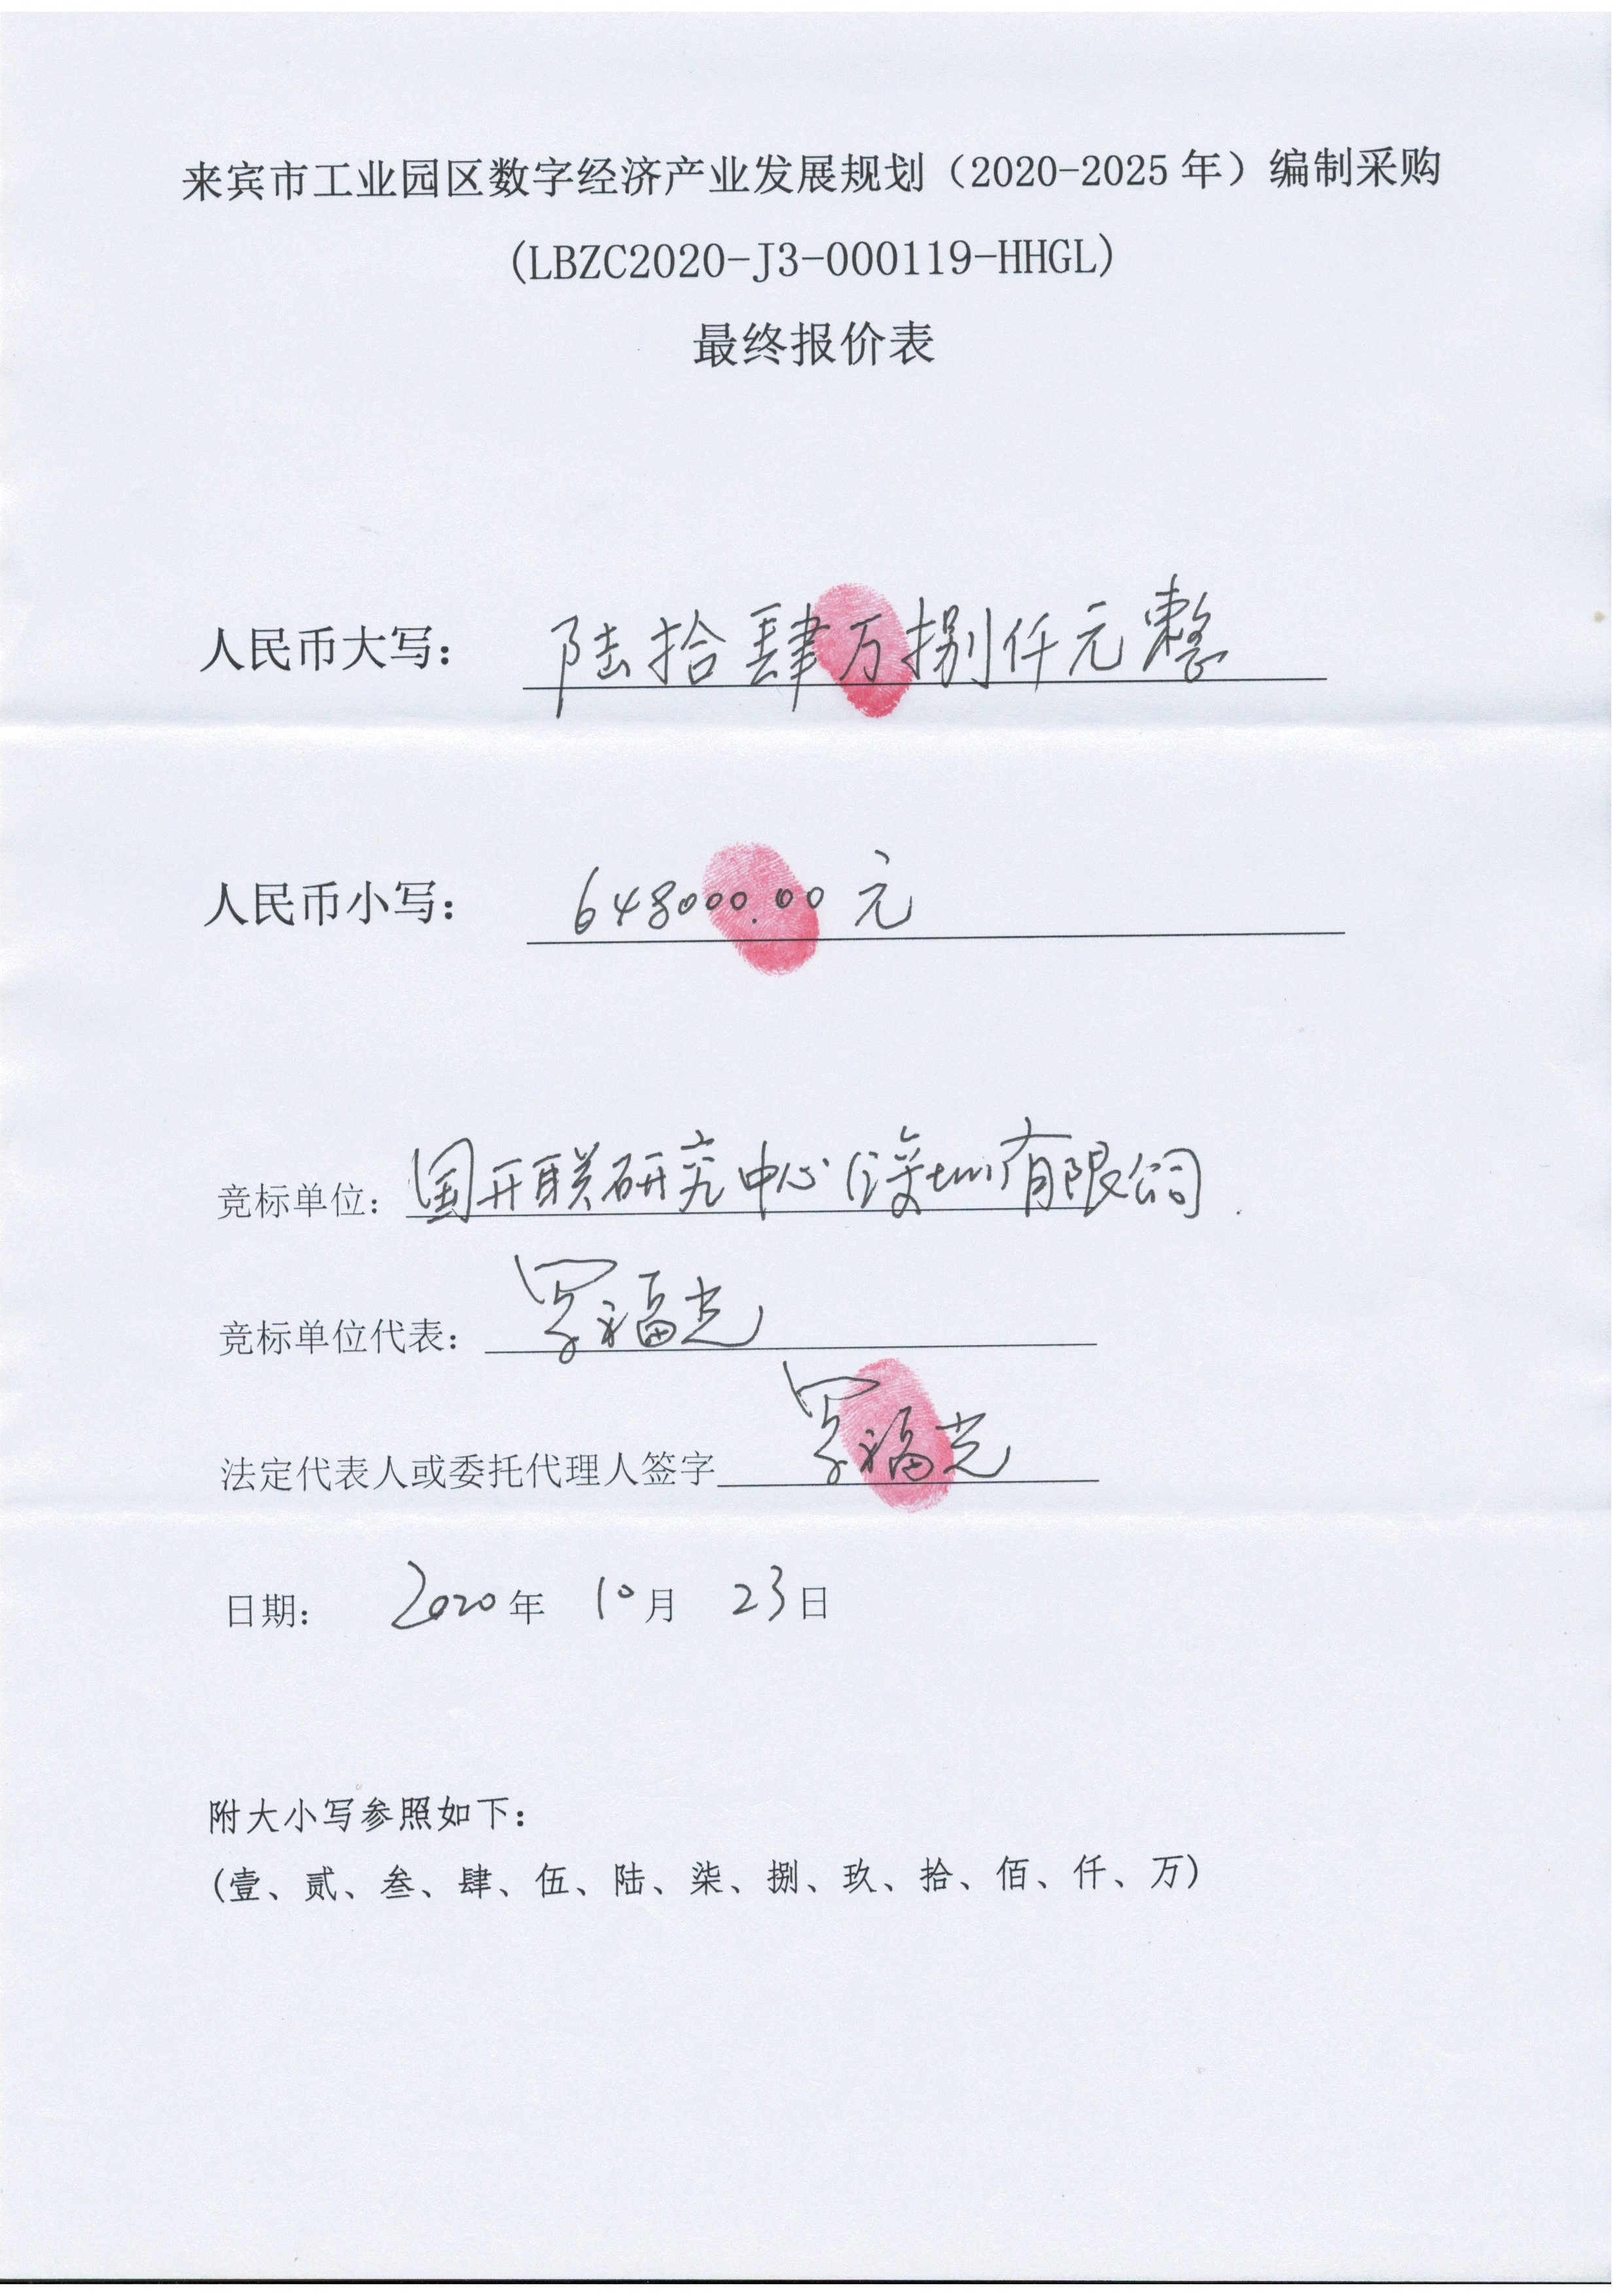 来宾市工业园区数字经济产业发展规划（2020-2025年）编制采购
(LBZC2020-J3-000119-HHGL)
最终报价表
人民币大写： 陆拾肆万捌仟元整
人民币小写： 648000.00 元
竞标单位：国开联研究中心(深圳)有限公司
竞标单位代表： 福光
法定代表人或委托代理人签字 福光
日期： 2020年 10月 23日
附大小写参照如下：
(壹、贰、叁、肆、伍、陆、柒、捌、玖、拾、佰、仟、万)